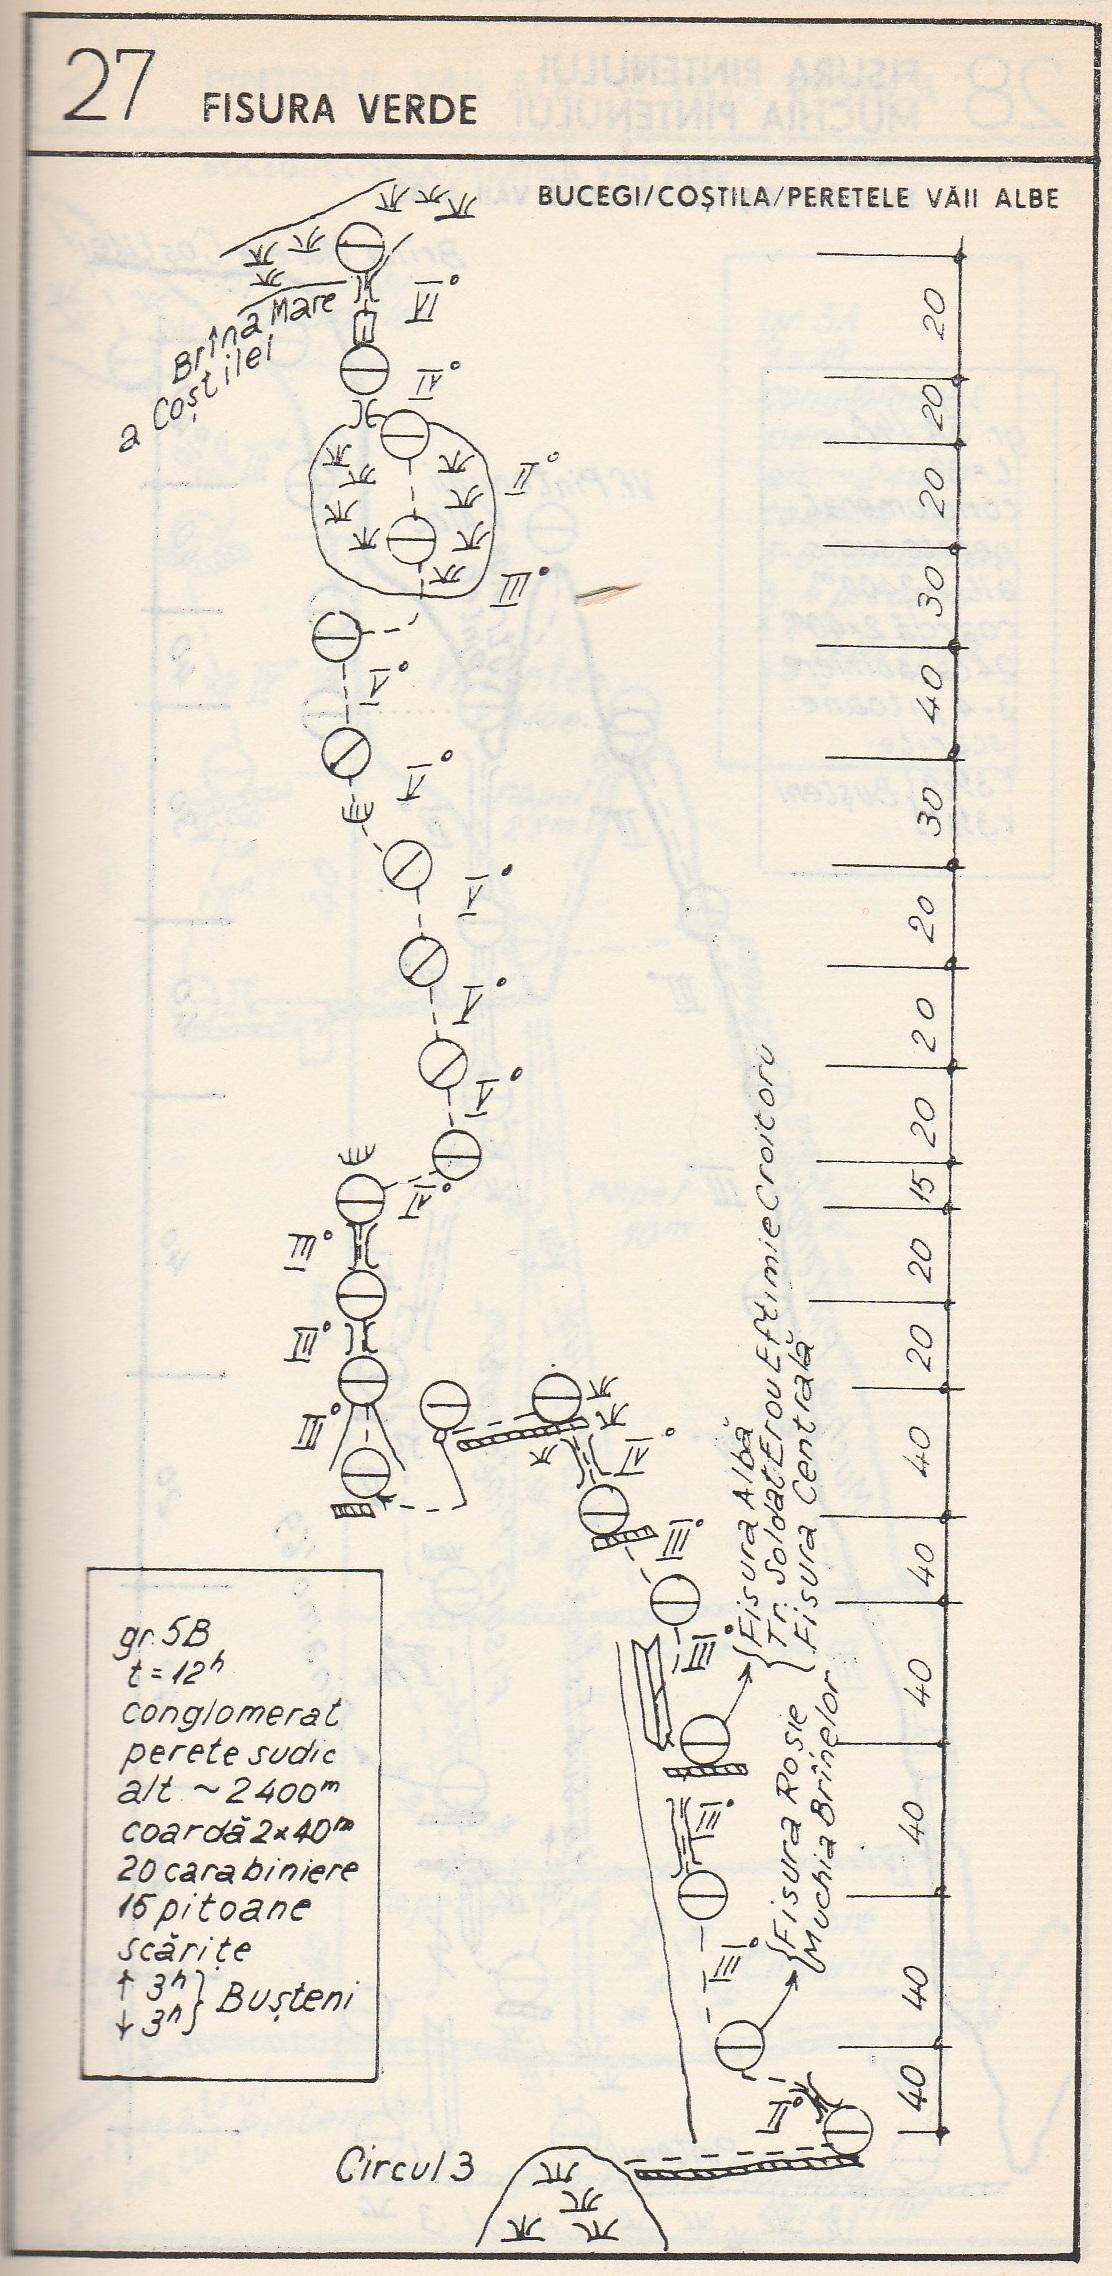 27
FISURA VERDE
BUCEGI/COȘTILA/PERETELE VĂII ALBE
Brîna Mare
a Coștilei
VI°
IV°
II°
III°
V°
V°
V°
V°
V°
IV°
III°
III°
III°
IV°
III°
III°
III°
III°
II°
20
20
20
30
40
30
20
20
20
15
20
20
40
40
40
40
40
40
Fisura Albă
Tr. Soldat Erou Eftimie Croitoru
Fisura Centrală
Fisura Rosie
Muchia Brînelor
gr. 5B
t = 12h
conglomerat
perete sudic
alt. ~ 2400m
coardă 2x40m
20 carabiniere
15 pitoane
scărițe
↑ 3h } Bușteni
↓ 3h
Circul 3